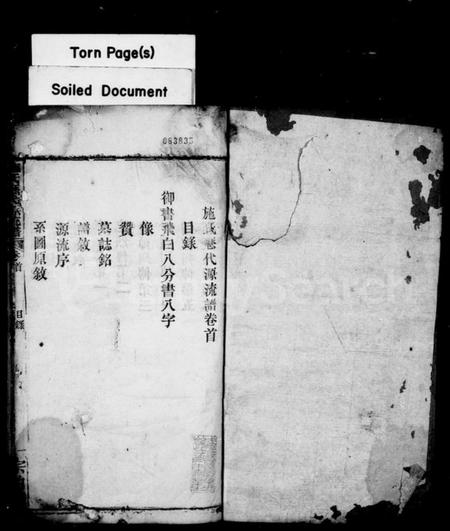 Torn Page(s)
Soiled Document
083835
施氏歷代源流譜卷首
目錄
御書飛白八分書八字
像
贊
墓誌銘
譜敘
源流序
系圖原敘
首
目錄